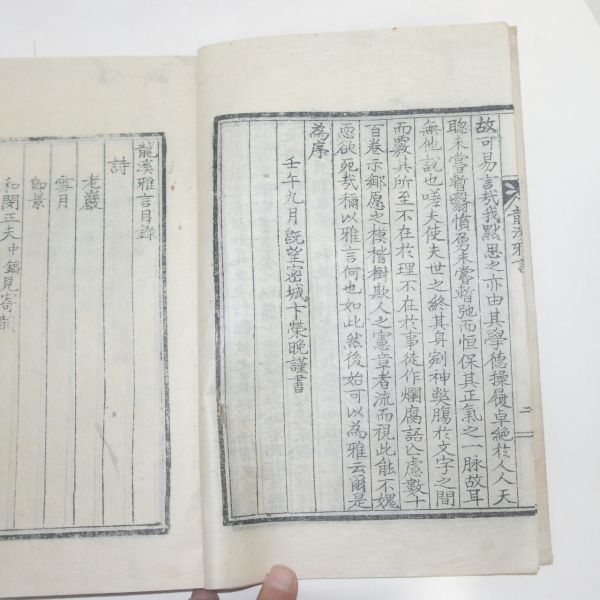 故可易言哉我黙思之亦由其學德操履卓絶於人人天
聰未嘗暫翳慎㐫未嘗暫弛而恒保其正氣之一脉故耳
無他說也嗟夫使夫世之終其身刳神憋膓於文字之間
而覈其所至不在於理不在於事徒作爛腐語以慮數十
百卷示鄉愿之模楷樹欺人之憲章者流而視此能不媿
恧欲死哉稱以雅言何也如此然後始可以為雅云爾是
為序
壬午九月旣望密城卞榮晚謹書
龍溪雅言
二
龍溪雅言目錄
詩
老巖
雪月
即景
和閔正夫中鎬見寄韵